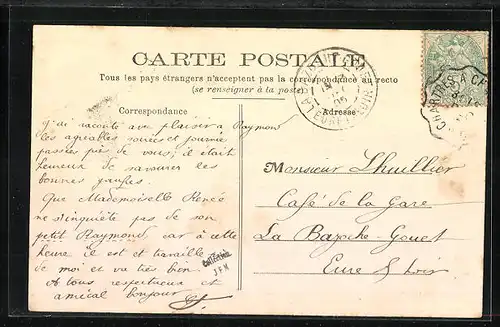 CARTE POSTALE
Tous les pays étrangers n'acceptent pas la correspondance au recto
(se renseigner à la poste)
Correspondance
Adresse
J'ai raconté avec plaisir à Raymond
les agréables soirées et journées
passées près de vous; il était
heureux de savourer les
bonnes gaufres.
Que Mademoiselle Renée
ne s'inquiète pas de son
petit Raymond, car à cette
heure il est et travaille
de moi et va très bien.
A tous respectueux et
amical bonjour
Monsieur Lhuillier
Café de la Gare
La Bazoche-Gouet
Eure & Loir
Collection
J F M
EURE-ET-LOIR
CHARTRES A